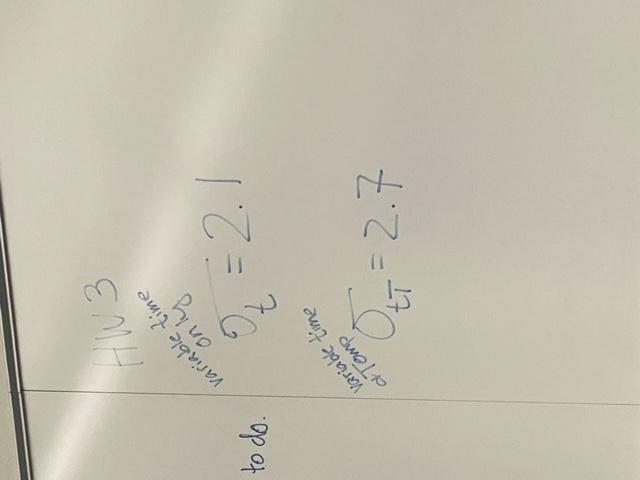 HW3
variable time
only
σt = 2.1
variable time
& Temp
σtT = 2.7
to do.